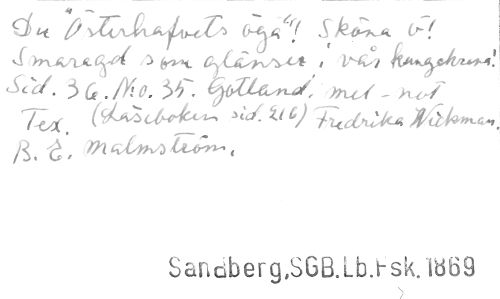 Du "Österhafvets öga"! Sköna ö!
Smaragd som glänser i vår kungekrona!
Sid. 36. No. 35. Gotland. mel - not
Tex. (Läseboken sid. 216) Fredrika Wickman.
B. E. Malmström.
Sandberg,SGB.Lb.Fsk. 1869